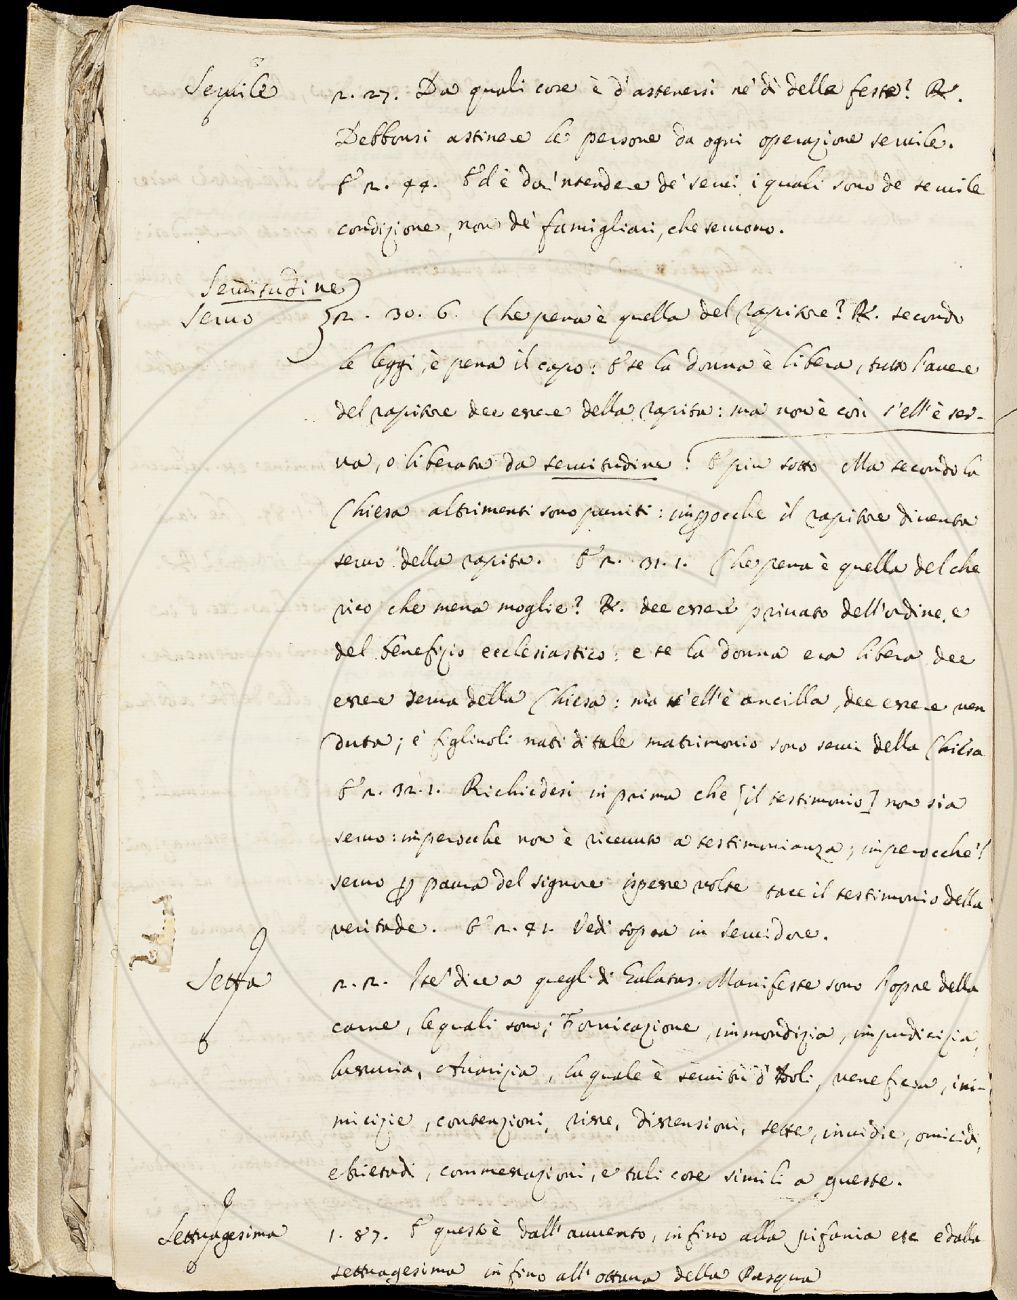 Servile 2. 27. Da quali cose è d'astenersi ne' dì delle feste? R.
Debbonsi astinere le persone da ogni operazione servile.
E 2. 44. E' d'è da 'ntendere de' servi, i quali sono de servile
condizione, non de' famigliari, che servono.
Servitudine
Servo 2. 30. 6. Che pena è quella del rapitore? R. secondo
le leggi, è pena il capo: E se la donna è libera, tutto l'avere
del rapitore dee essere della rapita: ma non è così s'ell'è ser-
va, o liberata da servitudine: E più sotto Ma secondo la
Chiesa altrimenti sono puniti: imperocche il rapitore diventa
servo della rapita. E 2. 31. 1. Che pena è quella del che
rico che mena moglie? R. dee essere privato dell'ordine, e
del benefizio ecclesiastico: e se la donna era libera dee
essere serva della Chiesa: ma s'ell'è ancilla, dee essere ven
duta; e figliuoli nati di tale matrimonio sono servi della Chiesa
E 2. 32. 1. Richiedesi in prima che [il testimonio] non sia
servo: imperocche non è ricevuto a testimonianza; imperocche 'l
servo per paura del signore ispesse volte tace il testimonio della
veritade. E 2. 41. Vedi sopra in Servidore.
Setta 2. 2. dice a quegli di Galatas. Manifeste sono l'opre della
carne, le quali sono; Fornicazione, immondizia, impudicizia,
lussuria, Avarizia, la quale è servitù d'Idoli, veneficia, ini-
micizie, contenzioni, risse, dissensioni, sette, invidie, omicidi,
ebrietadi, commessazioni, e tali cose simili a queste.
Settuagesima 1. 87. E quest'è dall'avvento, infino alla pifania etc e dalla
settuagesima infino all'ottava della Pasqua